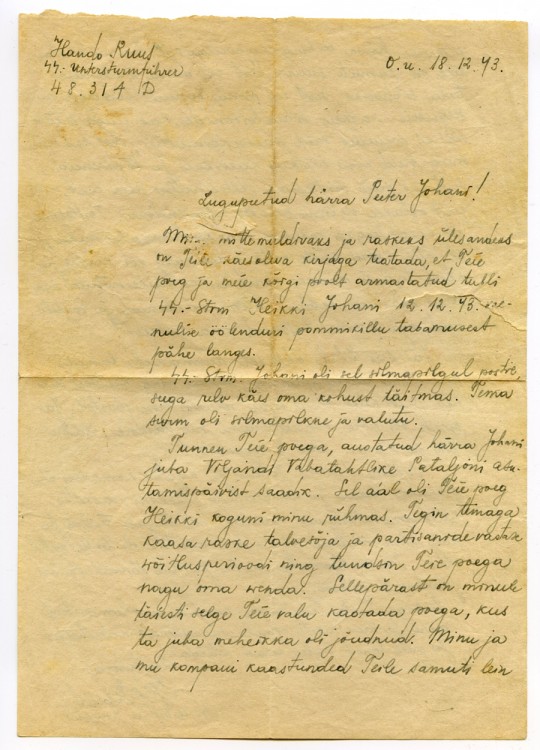 Hando Ruus
44.- Untersturmführer
48.314 D
O.U. 18.12.43.
Lugupeetud härra Peeter Johani!
mittemeeldivaks ja raskeks ülesandeks
on Teile käesoleva kirjaga teatada, et Teie
poeg ja meie kõigi poolt armastatud tubli
44.- Strm Heikki Johani 12.12.43. ve-
nulise öölenduri pommikillu tabamusest
pähe langes.
44.- Strm. Johani oli sel silmapilgul
relv käes oma kohust täitmas. Tema
surm oli silmapilkne ja valutu.
Tunnen Teie poega, austatud härra Johani
juba Viljandi Vabatahtlike Pataljoni asu-
tamispäivist saadik. Sel aal oli Teie poeg
Heikki koguni minu rühmas. Tegin temaga
kaasa raske talvesõja ja partisanidevastase
võitlusperioodi ning tundsin Teie poega
nagu oma venda. Sellepärast on minule
täiesti selge Teie valu kaotada poega, kus
ta juba meheikka oli jõudnud. Minu ja
mu kompanii kaastunded Teile samuti lein